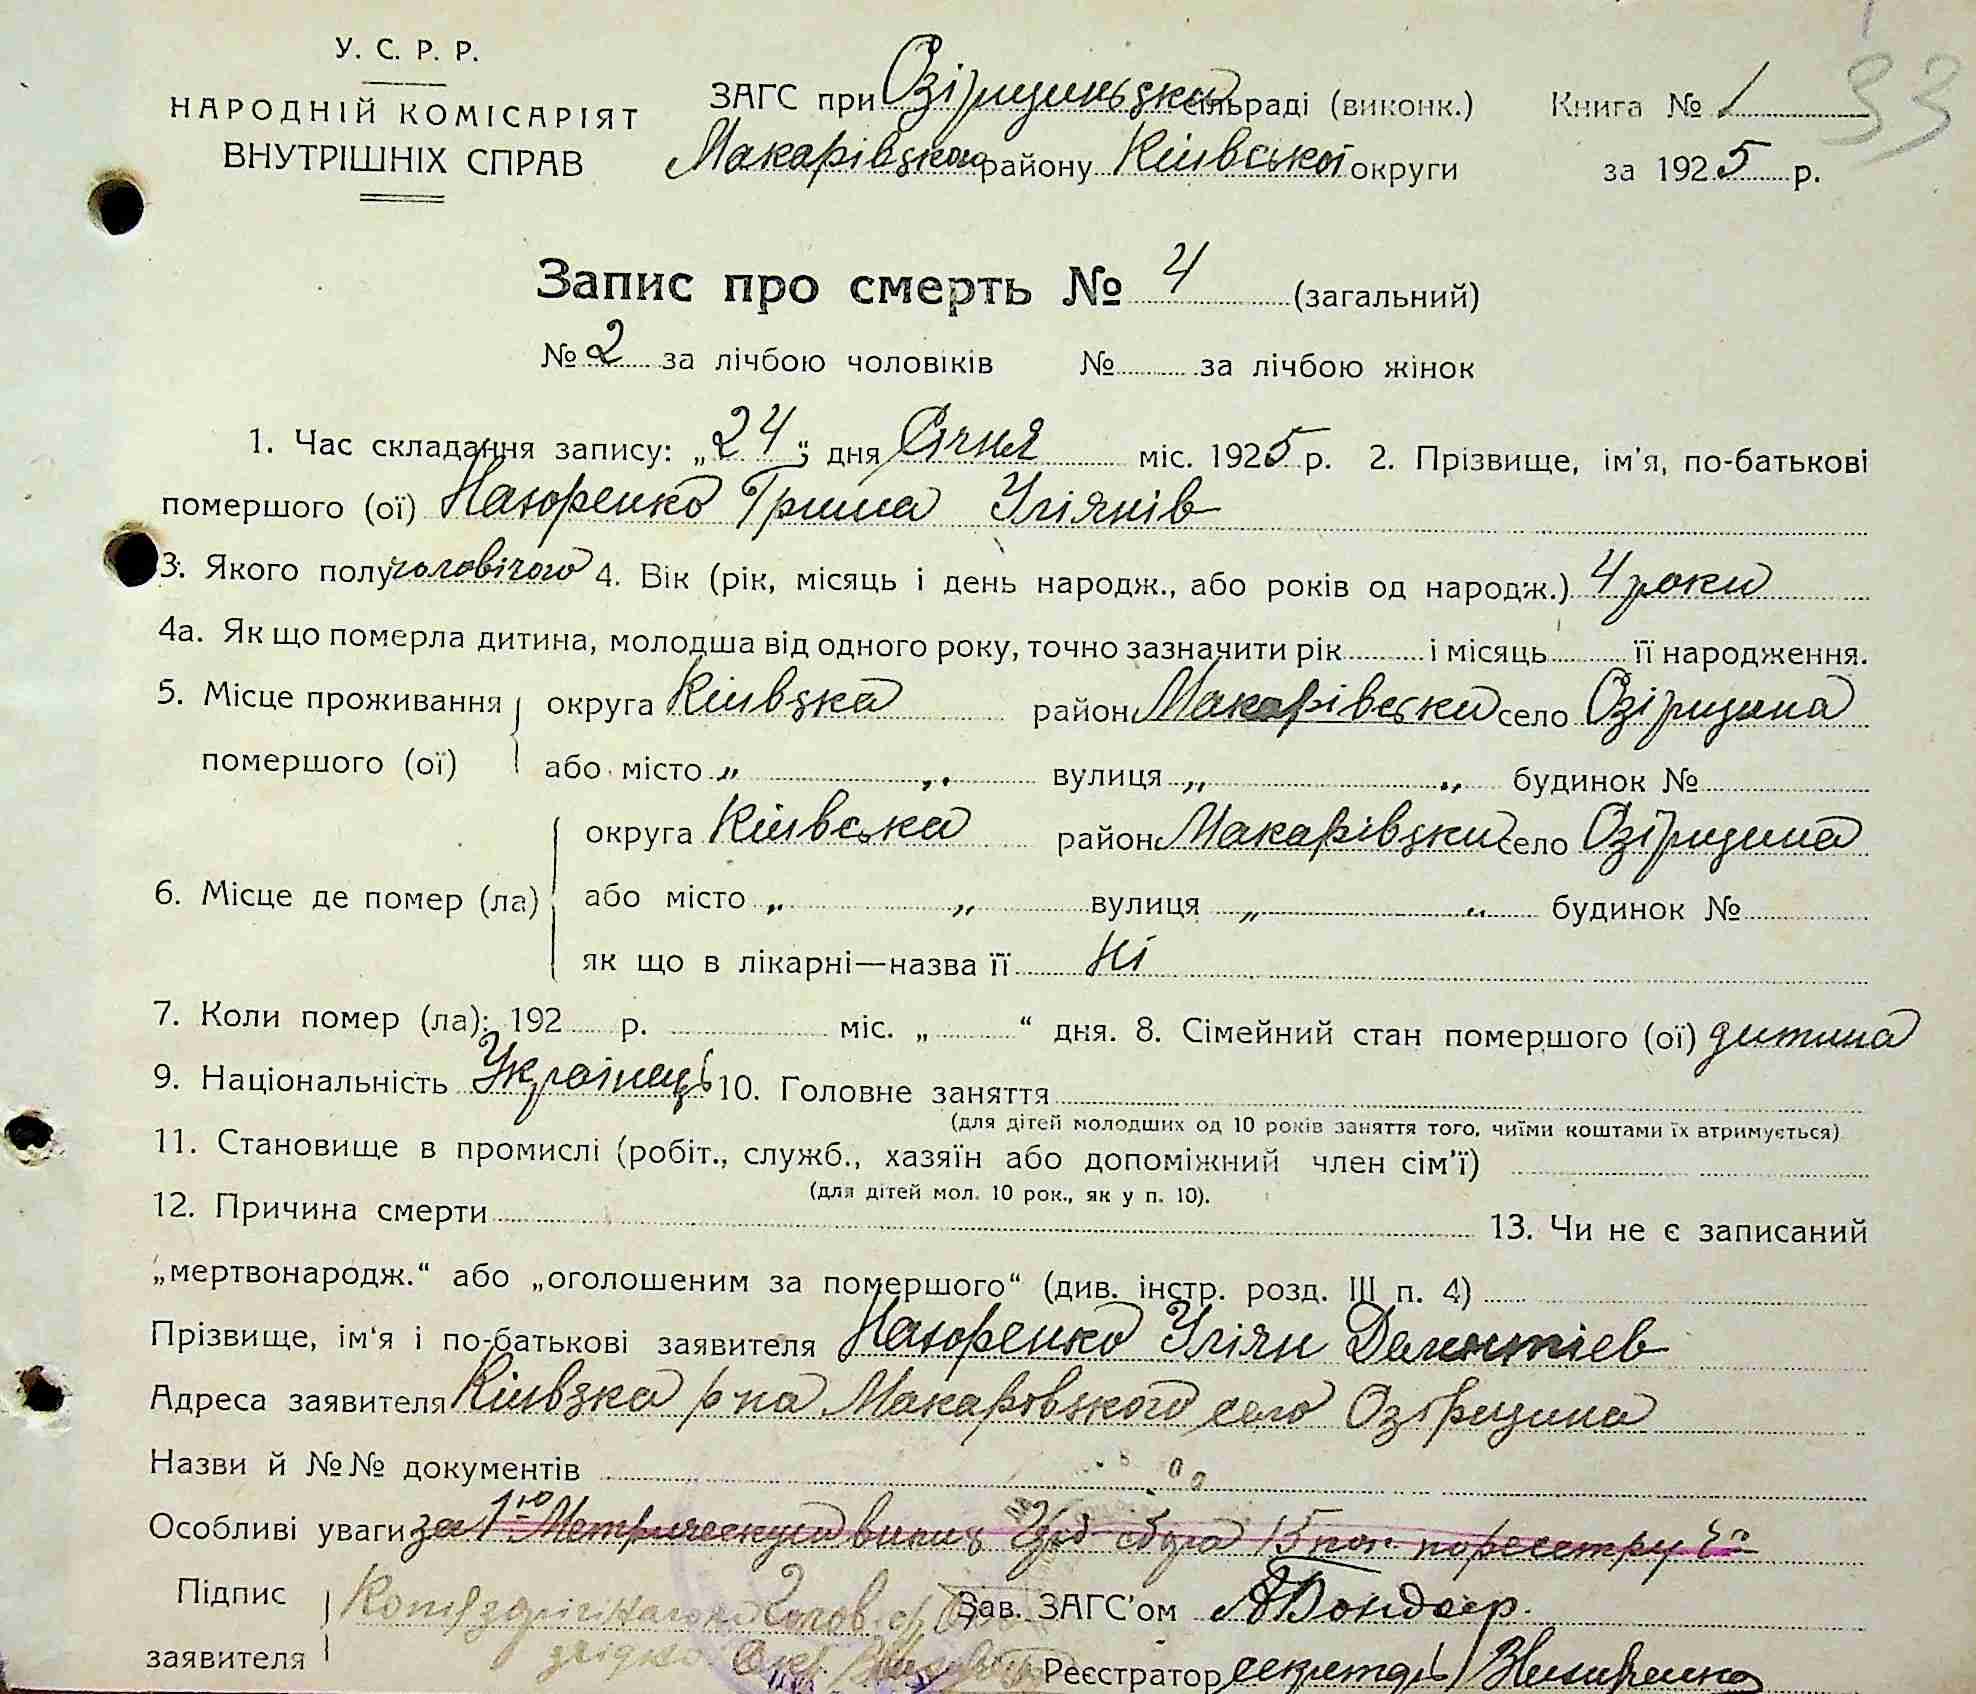 У. С. Р. Р.
НАРОДНІЙ КОМІСАРІЯТ
ВНУТРІШНІХ СПРАВ
ЗАГС при Озірщинська сільраді (виконк.) Книга № 1
33
Макарівского району Київської округи за 1925 р.
Запис про смерть № 4 (загальний)
№ 2 за лічбою чоловіків № за лічбою жінок
1. Час складання запису: „24“ дня Січня міс. 1925 р. 2. Прізвище, ім'я, по-батькові
помершого (ої) Назоренко Гриша Уліянів
3. Якого полу чоловічого 4. Вік (рік, місяць і день народж., або років од народж.) 4 роки
4а. Як що померла дитина, молодша від одного року, точно зазначити рік і місяць її народження.
5. Місце проживання помершого (ої)
округа Київска район Макарівски село Озірщина
або місто „ „ вулиця „ „ будинок №
6. Місце де помер (ла)
округа Київська район Макарівски село Озірщина
або місто „ „ вулиця „ „ будинок №
як що в лікарні—назва її Ні
7. Коли помер (ла): 192 р. міс. „ “ дня. 8. Сімейний стан помершого (ої) дитина
9. Національність Українець 10. Головне заняття
(для дітей молодших од 10 років заняття того, чиїми коштами їх втримується)
11. Становище в промислі (робіт., служб., хазяїн або допоміжний член сім'ї)
(для дітей мол. 10 рок., як у п. 10).
12. Причина смерти 13. Чи не є записаний
„мертвонародж.“ або „оголошеним за помершого“ (див. інстр. розд. III п. 4)
Прізвище, ім'я і по-батькові заявителя Назоренко Уліян
Адреса заявителя Київзка р-на Макаровского село Озірщина
Назви й №№ документів
Особливі уваги за 1ю Метрическую 15 коп. по реестру
Підпис заявителя
Копія з орігіналом
згідно
Голов.
Зав. ЗАГС'ом А Бондар.
Реєстратор секретарь